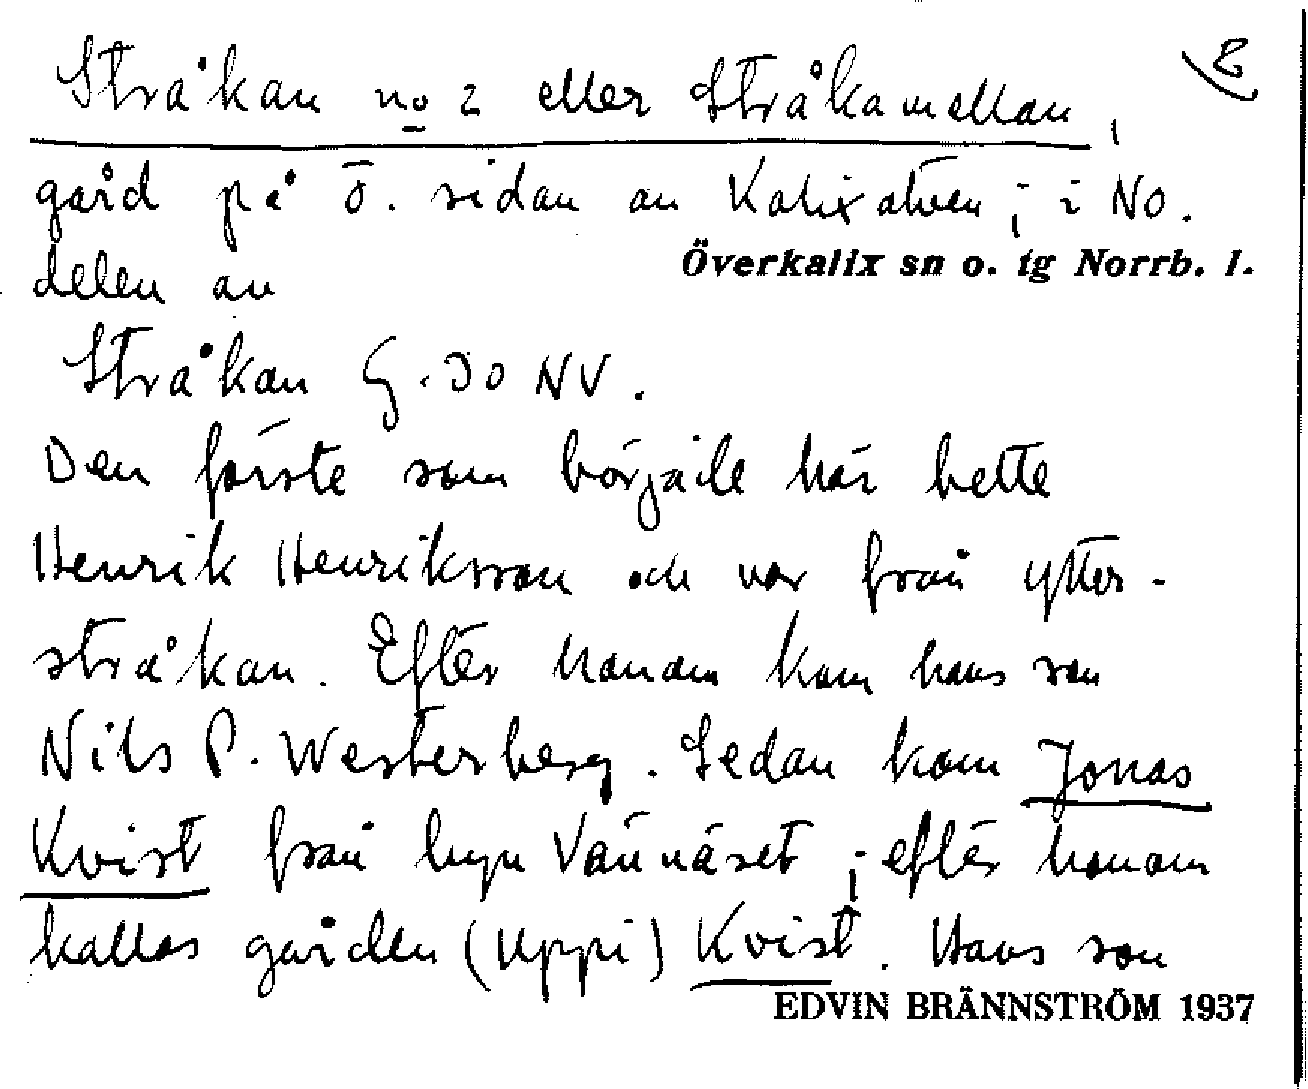 Stråkan no 2 eller Stråkamellan, 2
gård på ö. sidan av Kalixälven; i NO.
delen av
Överkalix sn o. tg Norrb. l.
Stråkan G. 30 NV.
Den förste som började här hette
Henrik Henriksson och var från Ytter-
stråkan. Efter honom kom hans son
Nils P. Westerberg. Sedan kom Jonas
Kvist från byn Vännäset; efter honom
kallas gården (Uppi) Kvist. Hans son
EDVIN BRÄNNSTRÖM 1937